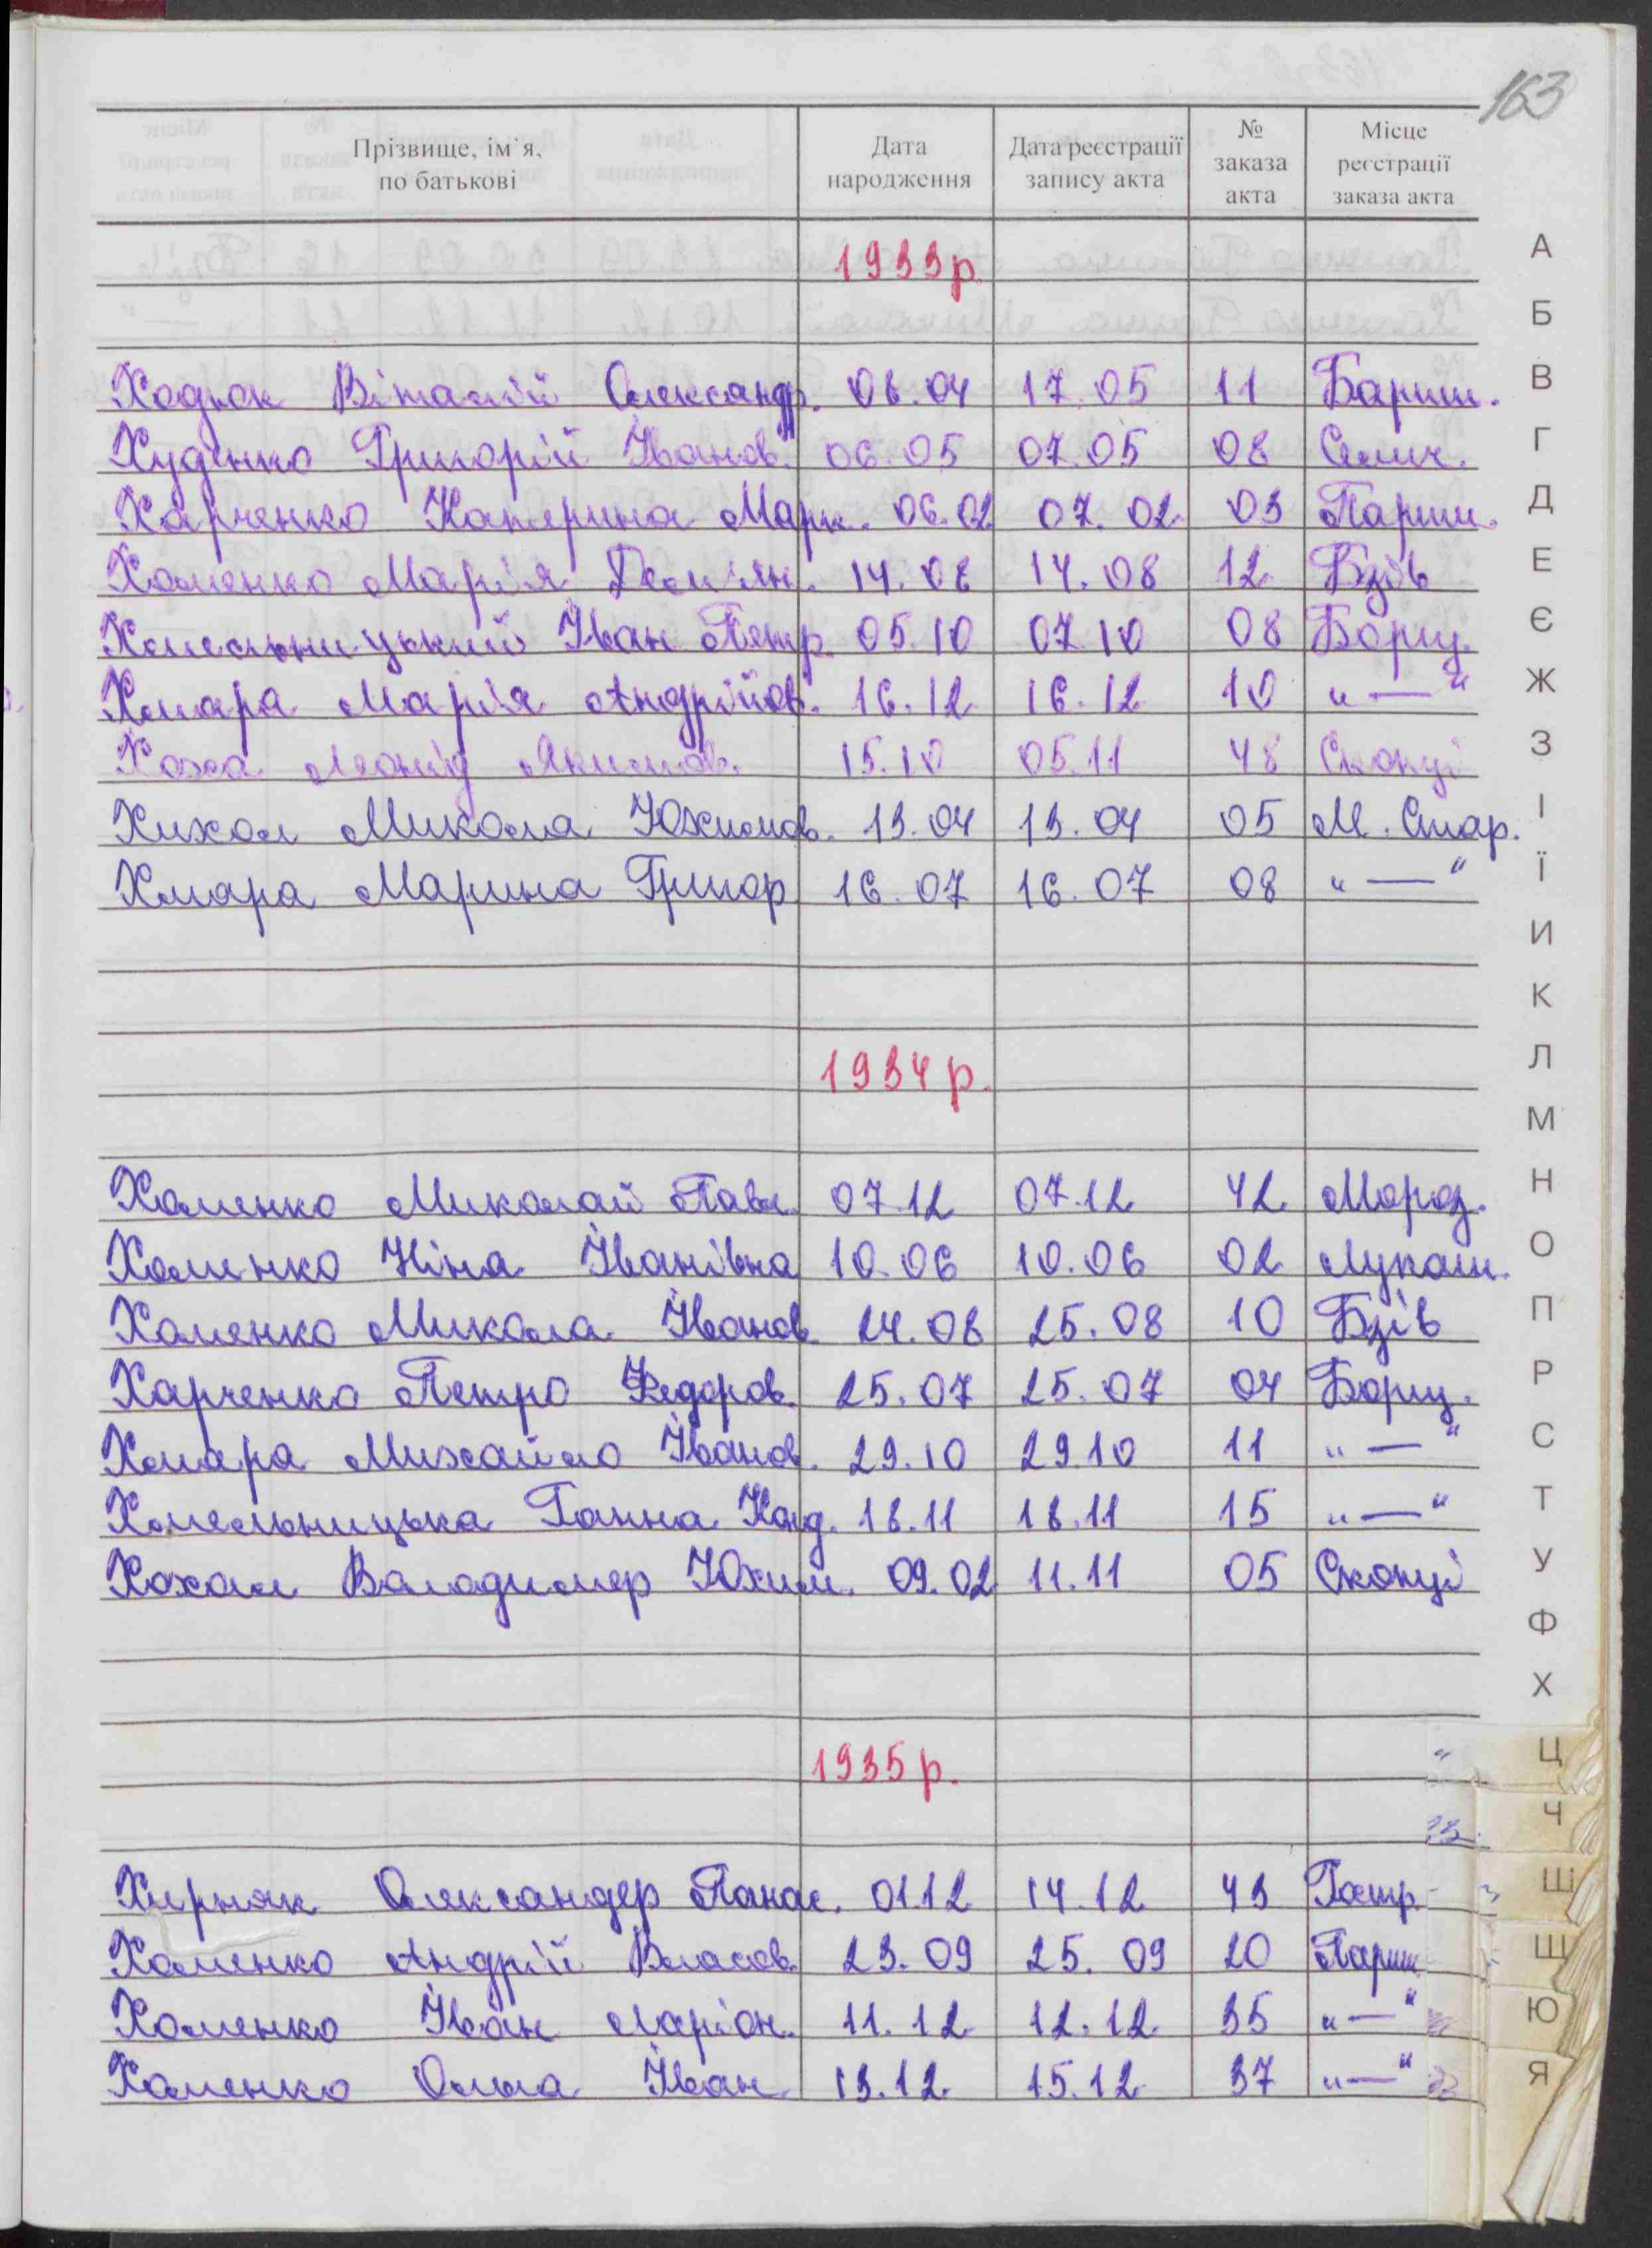 163
Прізвище, ім`я, по батькові | Дата народження | Дата реєстрації запису акта | № заказа акта | Місце реєстрації заказа акта
1933 р.
Ходюк Віталій Олександр. 08.04 17.05 11 Бариш.
Худенко Григорій Іванов. 06.05 07.05 08 Селич.
Харченко Катерина Марк. 06.02 07.02 03 Париш.
Хоменко Марія Дем'ян. 14.08 14.08 12 Бзів
Хмельницький Іван Петр. 05.10 07.10 08 Борщ.
Хмара Марія Андріїв. 16.12 16.12 10 " — "
Хоха Леонід Якимов. 15.10 05.11 48 Скопці
Хихол Микола Юхимов. 13.04 13.04 05 М. Стар.
Хмара Марина Григор 16.07 16.07 08 " — "
1934 р.
Хоменко Миколай Павл. 07.12 07.12 42 Мороз.
Хоменко Ніна Іванівна 10.06 10.06 02 Лукаш.
Хоменко Микола Іванов. 24.08 25.08 10 Бзів
Харченко Петро Федоров. 25.07 25.07 04 Борщ.
Хмара Михайло Іванов. 29.10 29.10 11 " — "
Хмельницька Ганна Конд. 18.11 18.11 15 " — "
Хохол Володимер Юхим. 09.02 11.11 05 Скопці
1935 р.
Хирняк Олександер Панас. 01.12 14.12 43 Гостр.
Хоменко Андрій Власов. 23.09 25.09 20 Париш
Хоменко Іван Ларіон. 11.12 12.12 35 " — "
Хоменко Ольга Іван 13.12 15.12 37 " — "
А
Б
В
Г
Д
Е
Є
Ж
З
І
Ї
И
К
Л
М
Н
О
П
Р
С
Т
У
Ф
Х
Ц
Ч
Ш
Щ
Ю
Я